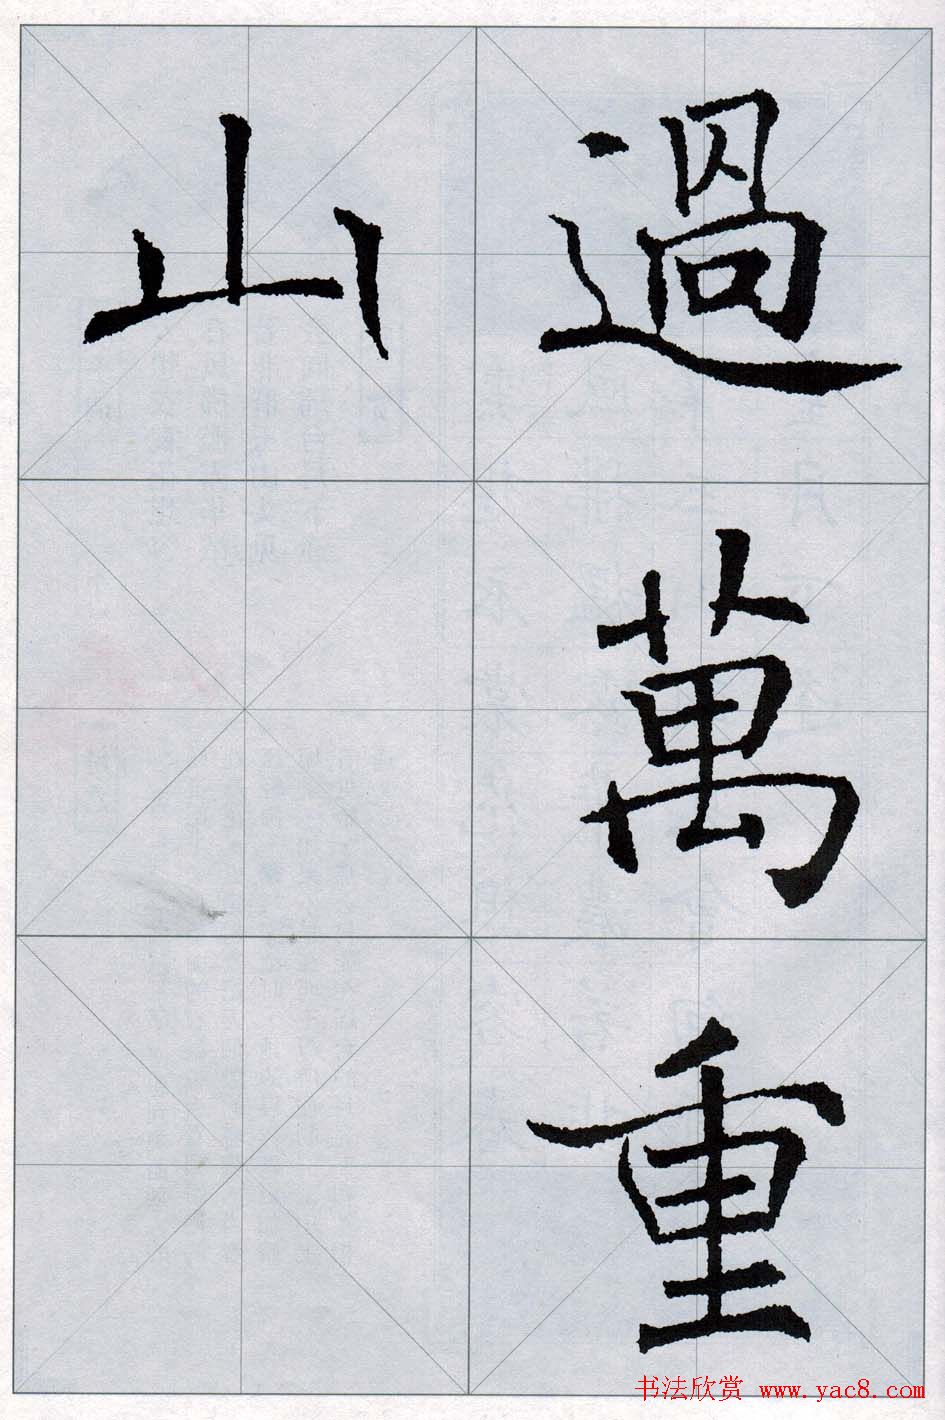 過萬重
山
书法欣赏 www.yac8.com